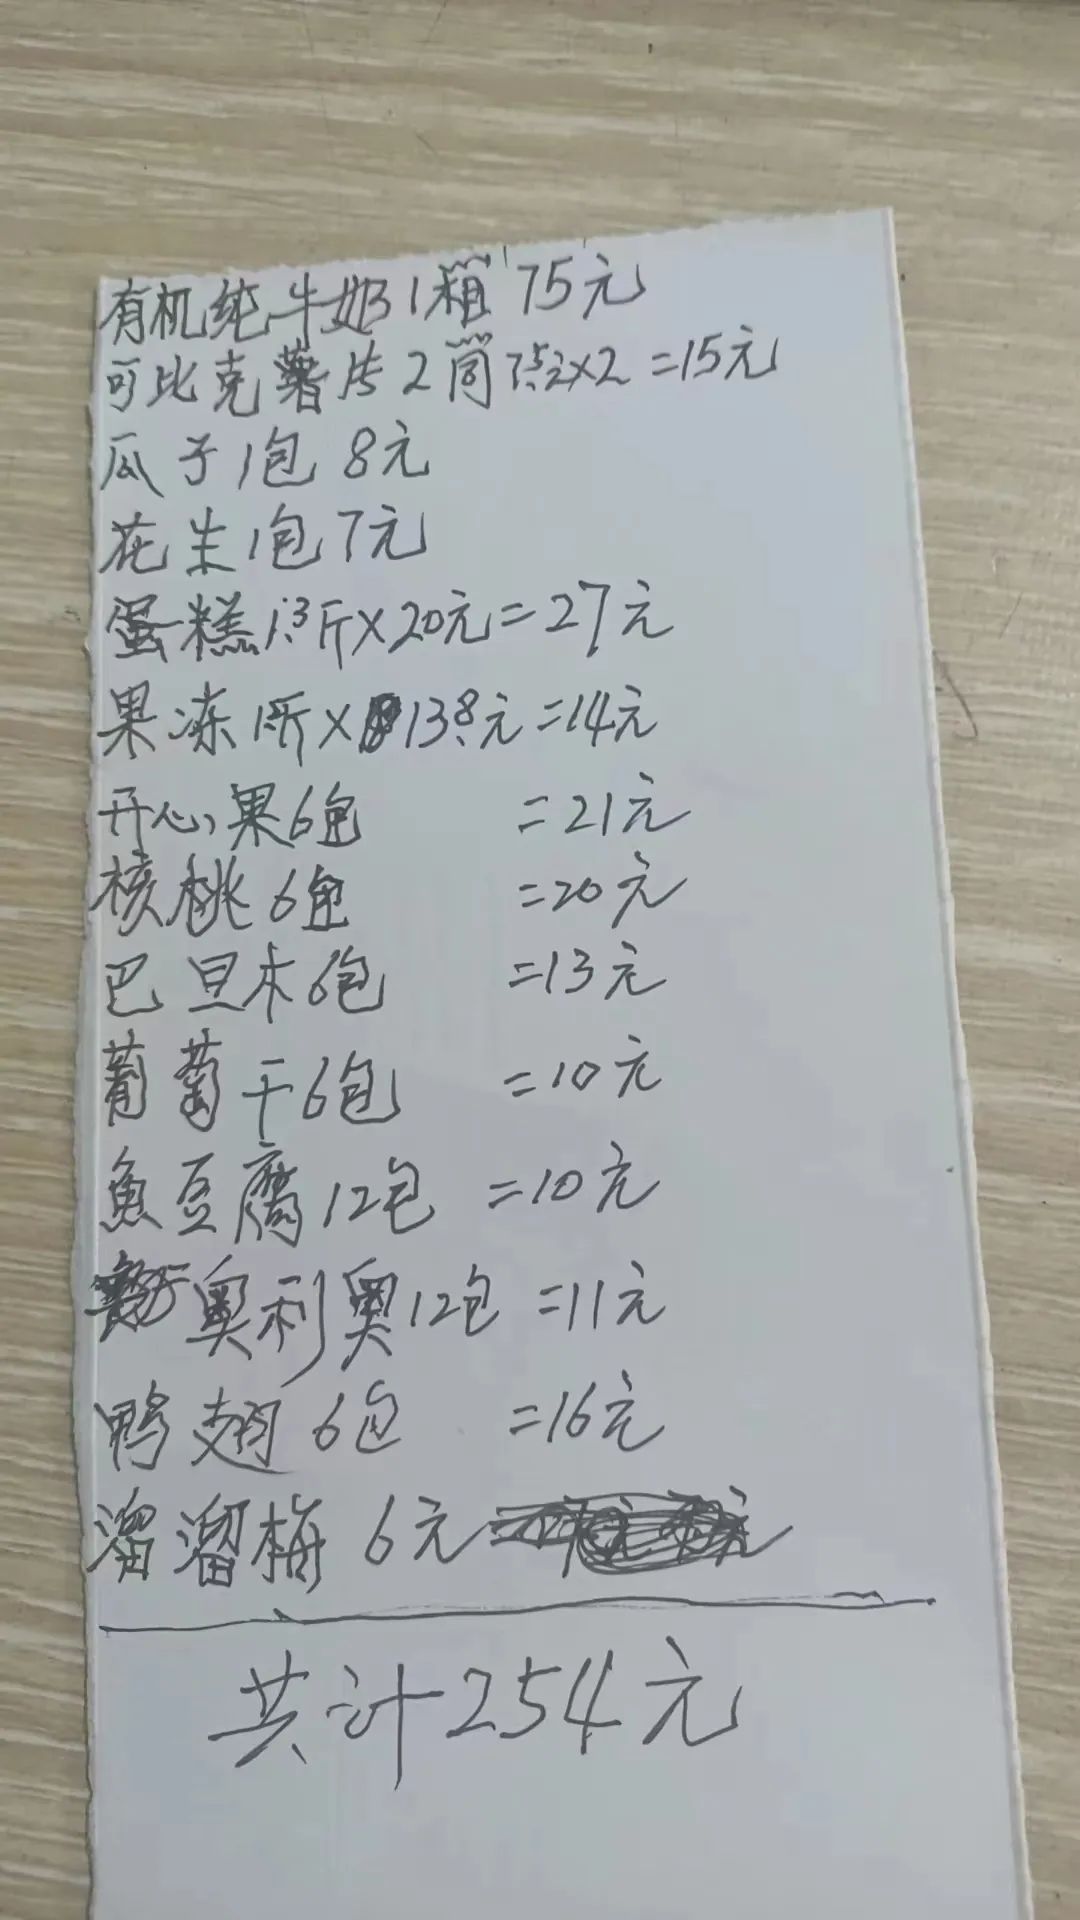 有机纯牛奶1箱 75元
可比克薯片2筒 7.5元×2=15元
瓜子1包 8元
花生1包7元
蛋糕1.3斤×20元=27元
果冻1斤×13.8元=14元
开心果6包 =21元
核桃6包 =20元
巴旦木6包 =13元
葡萄干6包 =10元
魚豆腐12包 =10元
奥利奥12包 =11元
鸭翅6包 =16元
溜溜梅 6元
共计254元